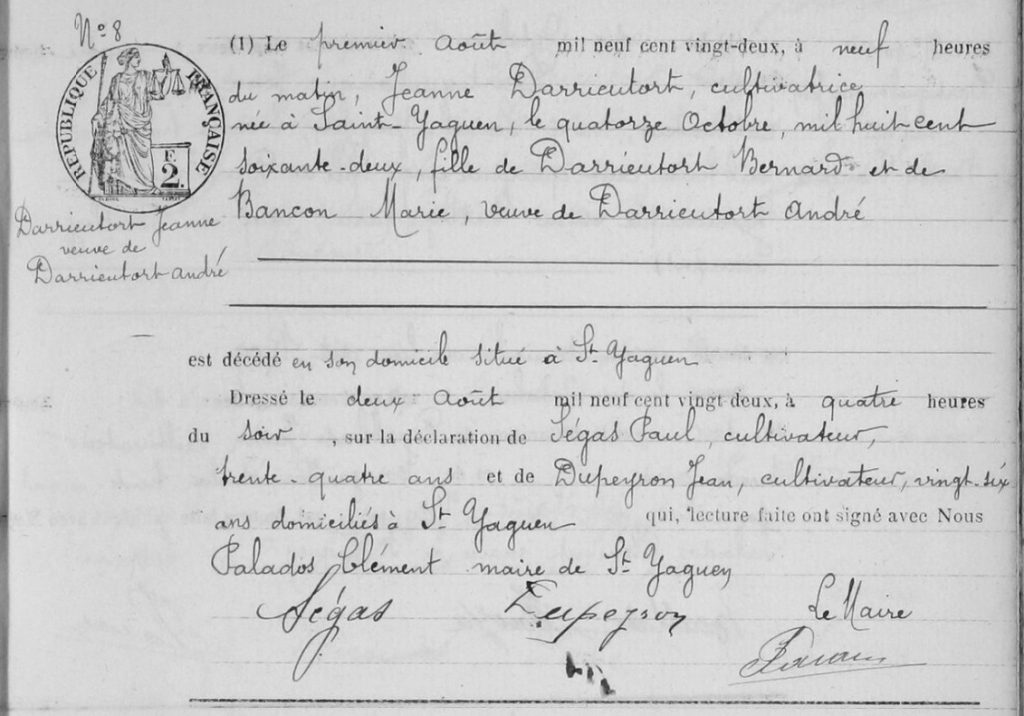 N° 8
RÉPUBLIQUE FRANÇAISE
F.
2.
(1) Le premier Août mil neuf cent vingt-deux, à neuf heures
du matin, Jeanne Darrieutort, cultivatrice
née à Saint-Yaguen, le quatorze Octobre, mil huit cent
soixante-deux, fille de Darrieutort Bernard et de
Bancon Marie, veuve de Darrieutort André
Darrieutort Jeanne
veuve de
Darrieutort andré
est décédé en son domicile situé à St Yaguen
Dressé le deux Août mil neuf cent vingt-deux, à quatre heures
du soir, sur la déclaration de Ségas Paul, cultivateur,
trente-quatre ans et de Dupeyron Jean, cultivateur, vingt-six
ans domiciliés à St Yaguen qui, lecture faite ont signé avec Nous
Palados Clément maire de St Yaguen
Ségas Dupeyron Le Maire